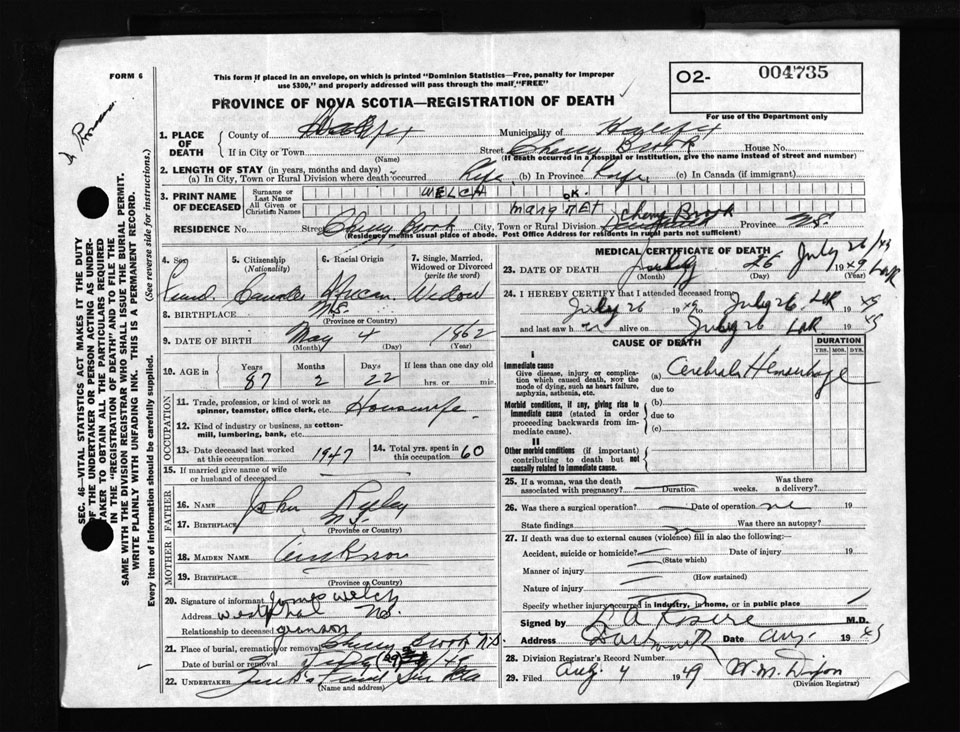 FORM 6
This form if placed in an envelope, on which is printed "Dominion Statistics—Free, penalty for improper
use $300," and properly addressed will pass through the mail "FREE"
O2- 004735
For use of the Department only
PROVINCE OF NOVA SCOTIA—REGISTRATION OF DEATH
1. PLACE OF DEATH
County of Halifax Municipality of Halifax
If in City or Town Street Cherry Brook House No.
(Name) (If death occurred in a hospital or institution, give the name instead of street and number)
2. LENGTH OF STAY (in years, months and days)
(a) In City, Town or Rural Division where death occurred Life (b) In Province Life (c) In Canada (if immigrant)
3. PRINT NAME OF DECEASED
Surname or Last Name WELCH OK.
All Given or Christian Names MARGRET
RESIDENCE No. Street Cherry Brook City, Town or Rural Division Cherry Brook Province N.S.
(Residence means usual place of abode. Post Office Address for residents in rural parts not sufficient)
4. Sex
5. Citizenship (Nationality)
6. Racial Origin
7. Single, Married, Widowed or Divorced (write the word)
African Widow
8. BIRTHPLACE N.S.
(Province or Country)
9. DATE OF BIRTH May 4 1862
(Month) (Day) (Year)
10. AGE in Years Months Days If less than one day old
87 2 22 hrs. or min.
OCCUPATION
11. Trade, profession, or kind of work as
spinner, teamster, office clerk, etc. Housewife
12. Kind of industry or business, as cotton-
mill, lumbering, bank, etc.
13. Date deceased last worked at this occupation 1947
14. Total yrs. spent in this occupation 60
15. If married give name of wife
or husband of deceased
FATHER
16. NAME John
17. BIRTHPLACE N.S.
(Province or Country)
MOTHER
18. MAIDEN NAME
19. BIRTHPLACE
(Province or Country)
20. Signature of informant James Welch
Address Westphal N.S.
Relationship to deceased grandson
21. Place of burial, cremation or removal Cherry Brook N.S.
Date of burial or removal July
22. UNDERTAKER
(Name and address)
MEDICAL CERTIFICATE OF DEATH
23. DATE OF DEATH July 26 1949 July 26/49 LAR
(Month) (Day) (Year)
24. I HEREBY CERTIFY that I attended deceased from
July 26 1949 to July 26 LAR 1949
and last saw her alive on July 26 LAR 1949
CAUSE OF DEATH
DURATION
YRS. MOS. DYS.
I
Immediate cause
Give disease, injury or complica-
tion which caused death, NOT the
mode of dying, such as heart failure,
asphyxia, asthenia, etc.
(a) Cerebral Hemorrhage
due to
Morbid conditions, if any, giving rise to
immediate cause (stated in order
proceeding backwards from im-
mediate cause).
(b)
due to
(c)
II
Other morbid conditions (if important)
contributing to death but not
causally related to immediate cause.
25. If a woman, was the death
associated with pregnancy? Duration weeks. Was there a delivery?
26. Was there a surgical operation? Date of operation 19
State findings Was there an autopsy?
27. If death was due to external causes (violence) fill in also the following:
Accident, suicide or homicide? Date of injury 19
(State which)
Manner of injury
(How sustained)
Nature of injury
Specify whether injury occurred in industry, in home, or in public place
Signed by M.D.
Address Dartmouth Date Aug. 1949
28. Division Registrar's Record Number
29. Filed Aug 4 1949 W. M. Dixon
(Division Registrar)
SEC. 46—VITAL STATISTICS ACT MAKES IT THE DUTY
OF THE UNDERTAKER OR PERSON ACTING AS UNDER-
TAKER TO OBTAIN ALL THE PARTICULARS REQUIRED
IN THE "REGISTRATION OF DEATH" AND TO FILE THE
SAME WITH THE DIVISION REGISTRAR WHO SHALL ISSUE THE BURIAL PERMIT.
WRITE PLAINLY WITH UNFADING INK. THIS IS A PERMANENT RECORD.
Every item of information should be carefully supplied. (See reverse side for instructions.)